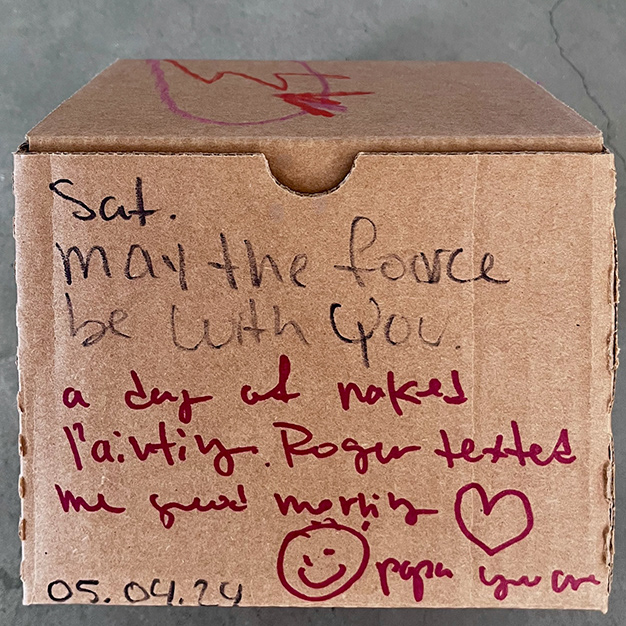 Sat.
May the fource
be with you.
a day of naked
Painting. Roger texted
me good morning
papa you are
05.04.24